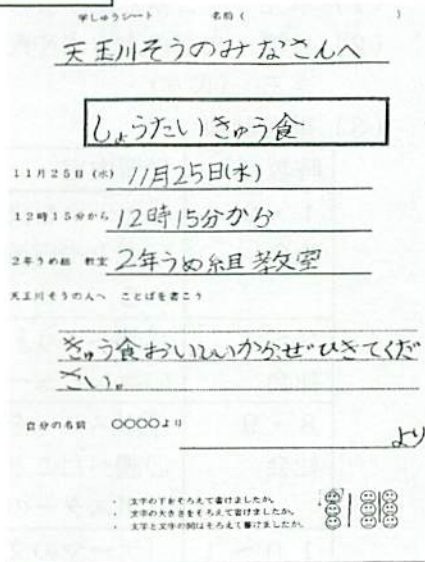 学しゅうシート 名前( )
天王川そうのみなさんへ
しょうたいきゅう食
11月25日(水) 11月25日(水)
12時15分から 12時15分から
2年うめ組 教室 2年うめ組教室
天王川そうの人へ ことばを書こう
きゅう食おいしいからぜひきてくだ
さい。
自分の名前 〇〇〇〇より より
・ 文字の下をそろえて書けましたか。
・ 文字の大きさをそろえて書けましたか。
・ 文字と文字の間はそろえて書けましたか。